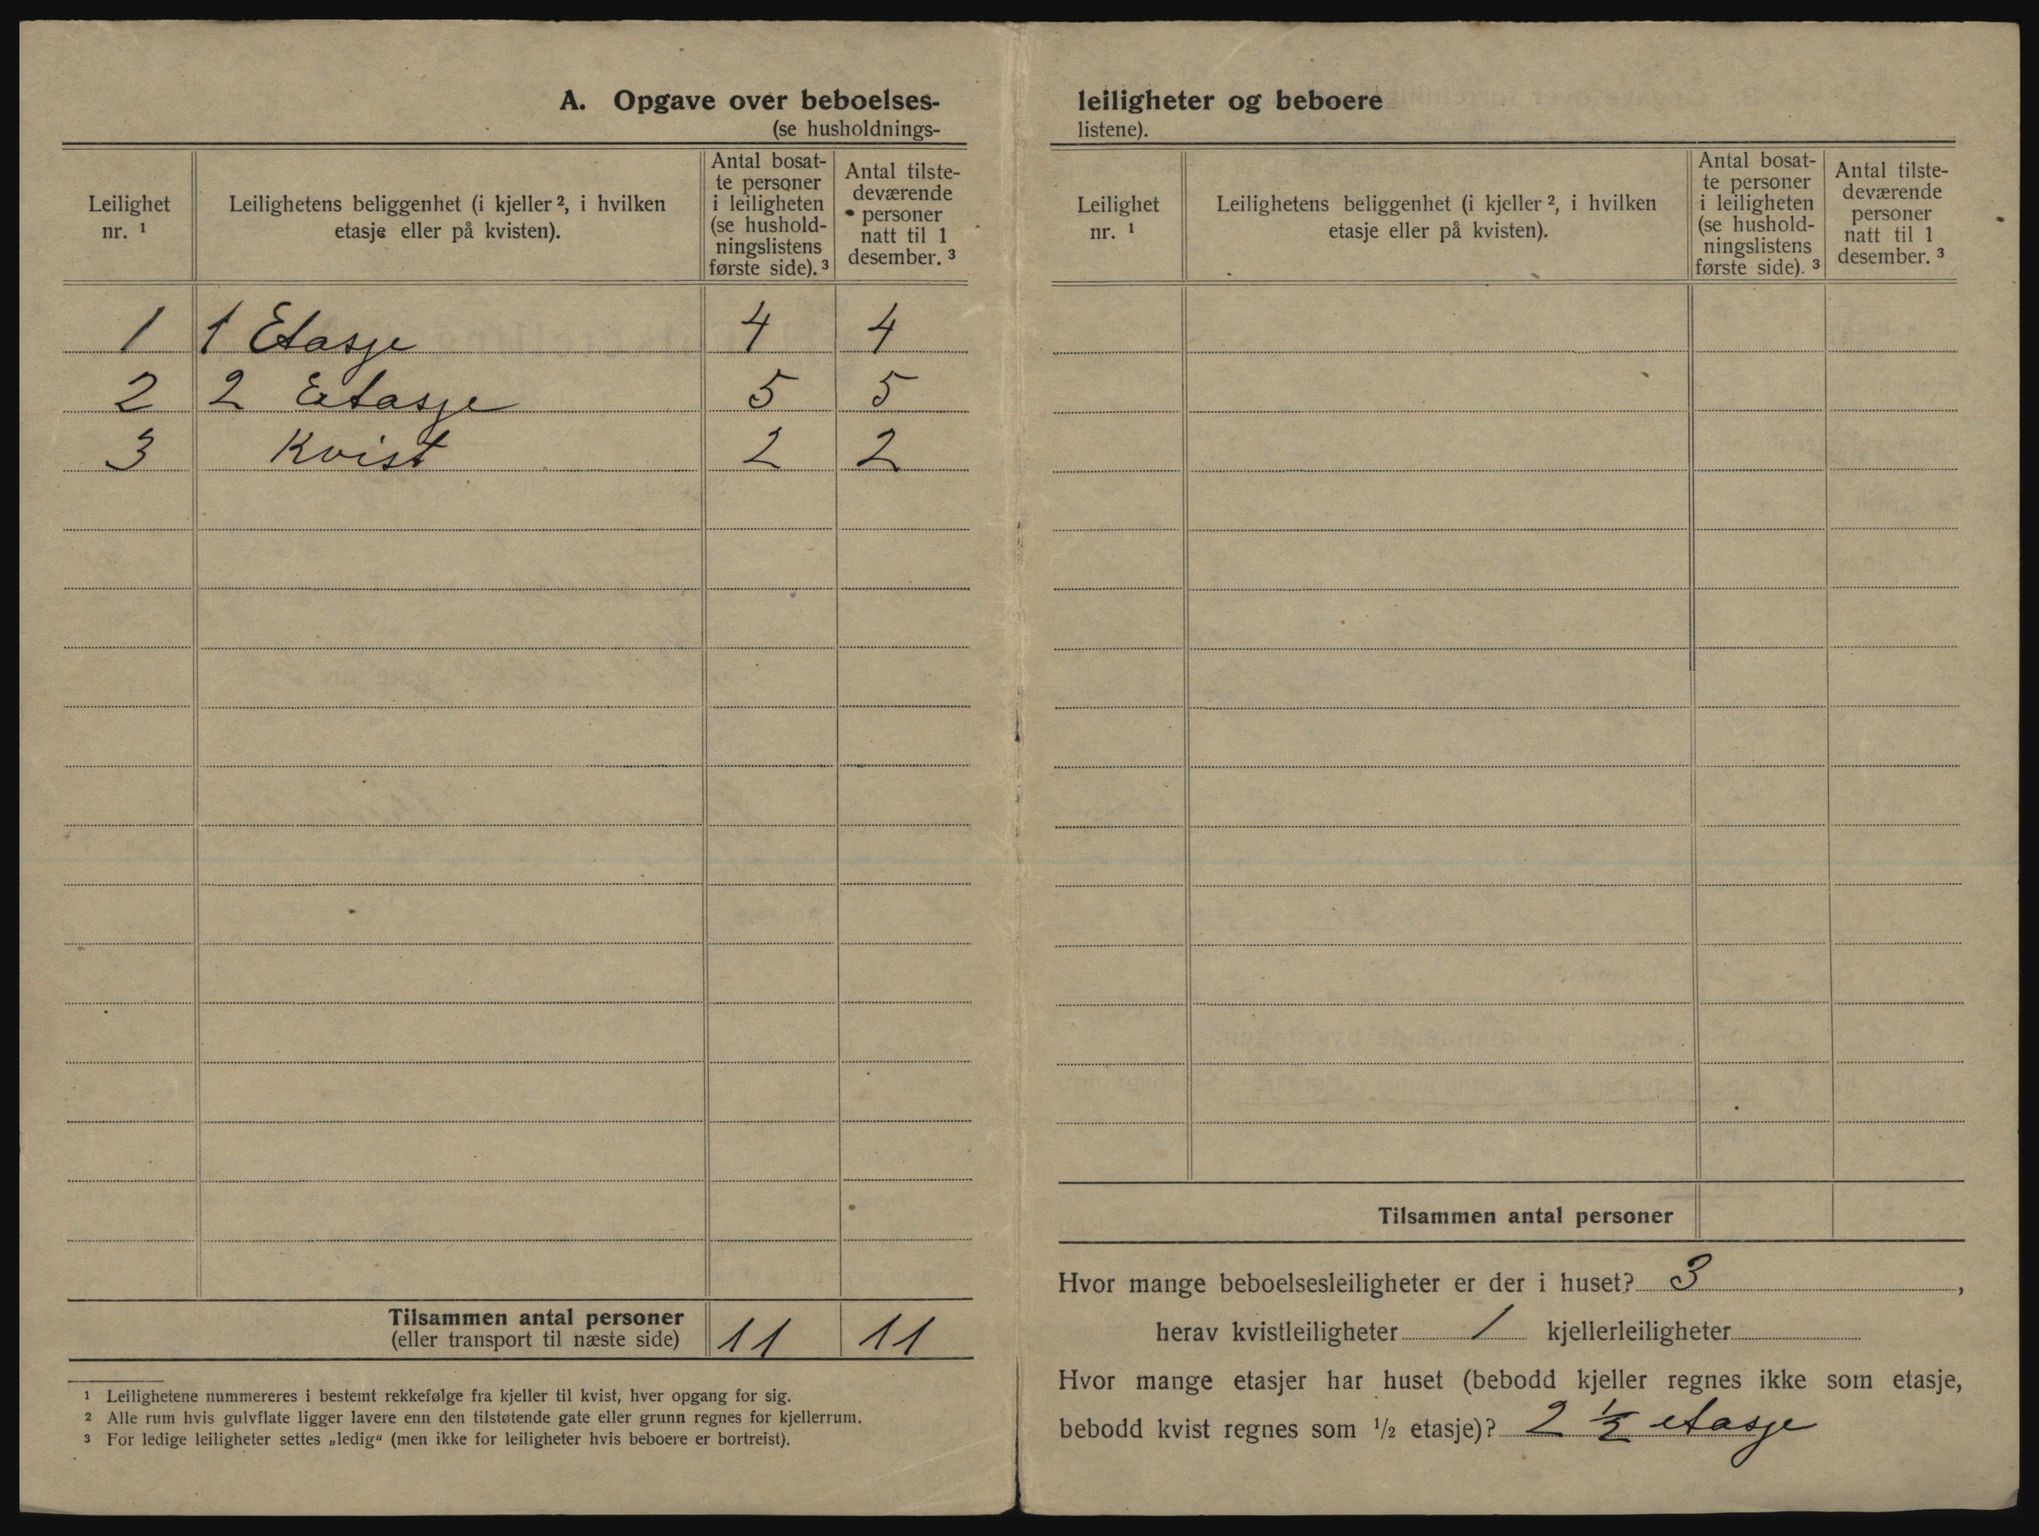 A. Opgave over beboelses-
(se husholdnings-
Leilighet nr. ¹
Leilighetens beliggenhet (i kjeller ², i hvilken
etasje eller på kvisten).
Antal bosat-
te personer
i leiligheten
(se hushold-
ningslistens
første side). ³
Antal tilste-
deværende
personer
natt til 1
desember. ³
1 1 Etasje 4 4
2 2 Etasje 5 5
3 Kvist 2 2
Tilsammen antal personer
(eller transport til næste side) 11 11
¹ Leilighetene nummereres i bestemt rekkefølge fra kjeller til kvist, hver opgang for sig.
² Alle rum hvis gulvflate ligger lavere enn den tilstøtende gate eller grunn regnes for kjellerrum.
³ For ledige leiligheter settes „ledig“ (men ikke for leiligheter hvis beboere er bortreist).
leiligheter og beboere
listene).
Leilighet nr. ¹
Leilighetens beliggenhet (i kjeller ², i hvilken
etasje eller på kvisten).
Antal bosat-
te personer
i leiligheten
(se hushold-
ningslistens
første side). ³
Antal tilste-
deværende
personer
natt til 1
desember. ³
Tilsammen antal personer
Hvor mange beboelsesleiligheter er der i huset? 3 ,
herav kvistleiligheter 1 kjellerleiligheter
Hvor mange etasjer har huset (bebodd kjeller regnes ikke som etasje,
bebodd kvist regnes som ½ etasje)? 2 ½ etasje